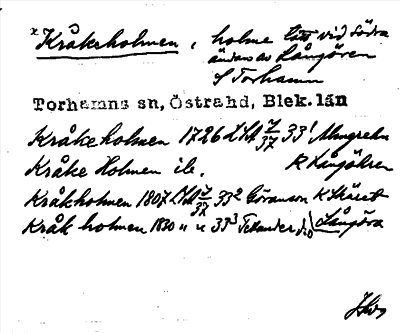 x Kråkerholmen, holme tätt vid Södra
ändan av Långören
S Torhamn
Torhamns sn, Östra hd, Blek. län
Kråkeholmen 1726 LSA 7/37 33¹ Almgrehn
Kråke Holmen ib. R Långöhren
Kråkholmen 1807 LSA 7/37 33² Göranson K Skäret
Kråk holmen 1830 " " 33³ Tellander Långöra